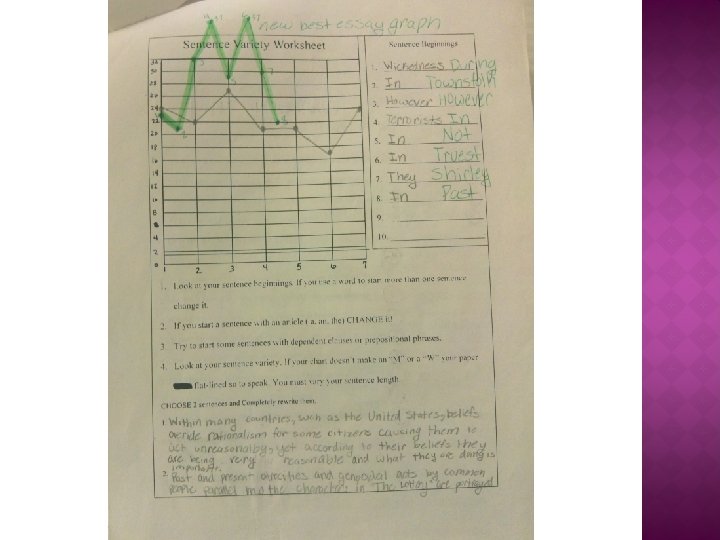 new best essay graph
Sentence Variety Worksheet
Sentence Beginnings
1. Wickedness During
2. In
3. However However
4. Terrorists In
5. In Not
6. In Truest
7. They Shirley
8. In Past
9.
10.
28
24
20
18
16
14
12
10
8
6
4
2
0
1 2 3 4 5 6 7
1. Look at your sentence beginnings. If you use a word to start more than one sentence
change it.
2. If you start a sentence with an article ( a, an, the) CHANGE it!
3. Try to start some sentences with dependent clauses or prepositional phrases.
4. Look at your sentence variety. If your chart doesn't make an "M" or a "W" your paper
flat-lined so to speak. You must vary your sentence length
CHOOSE 2 sentences and Completely rewrite them.
1. Within many countries, such as the United States, beliefs
override rationalism for some citizens causing them to
act unreasonalby, yet according to their beliefs they
are being very reasonable and what they are doing is
important.
2. Past and present atrocities and genocidal acts by common
people parallel the characters in The Lottery are portrayed